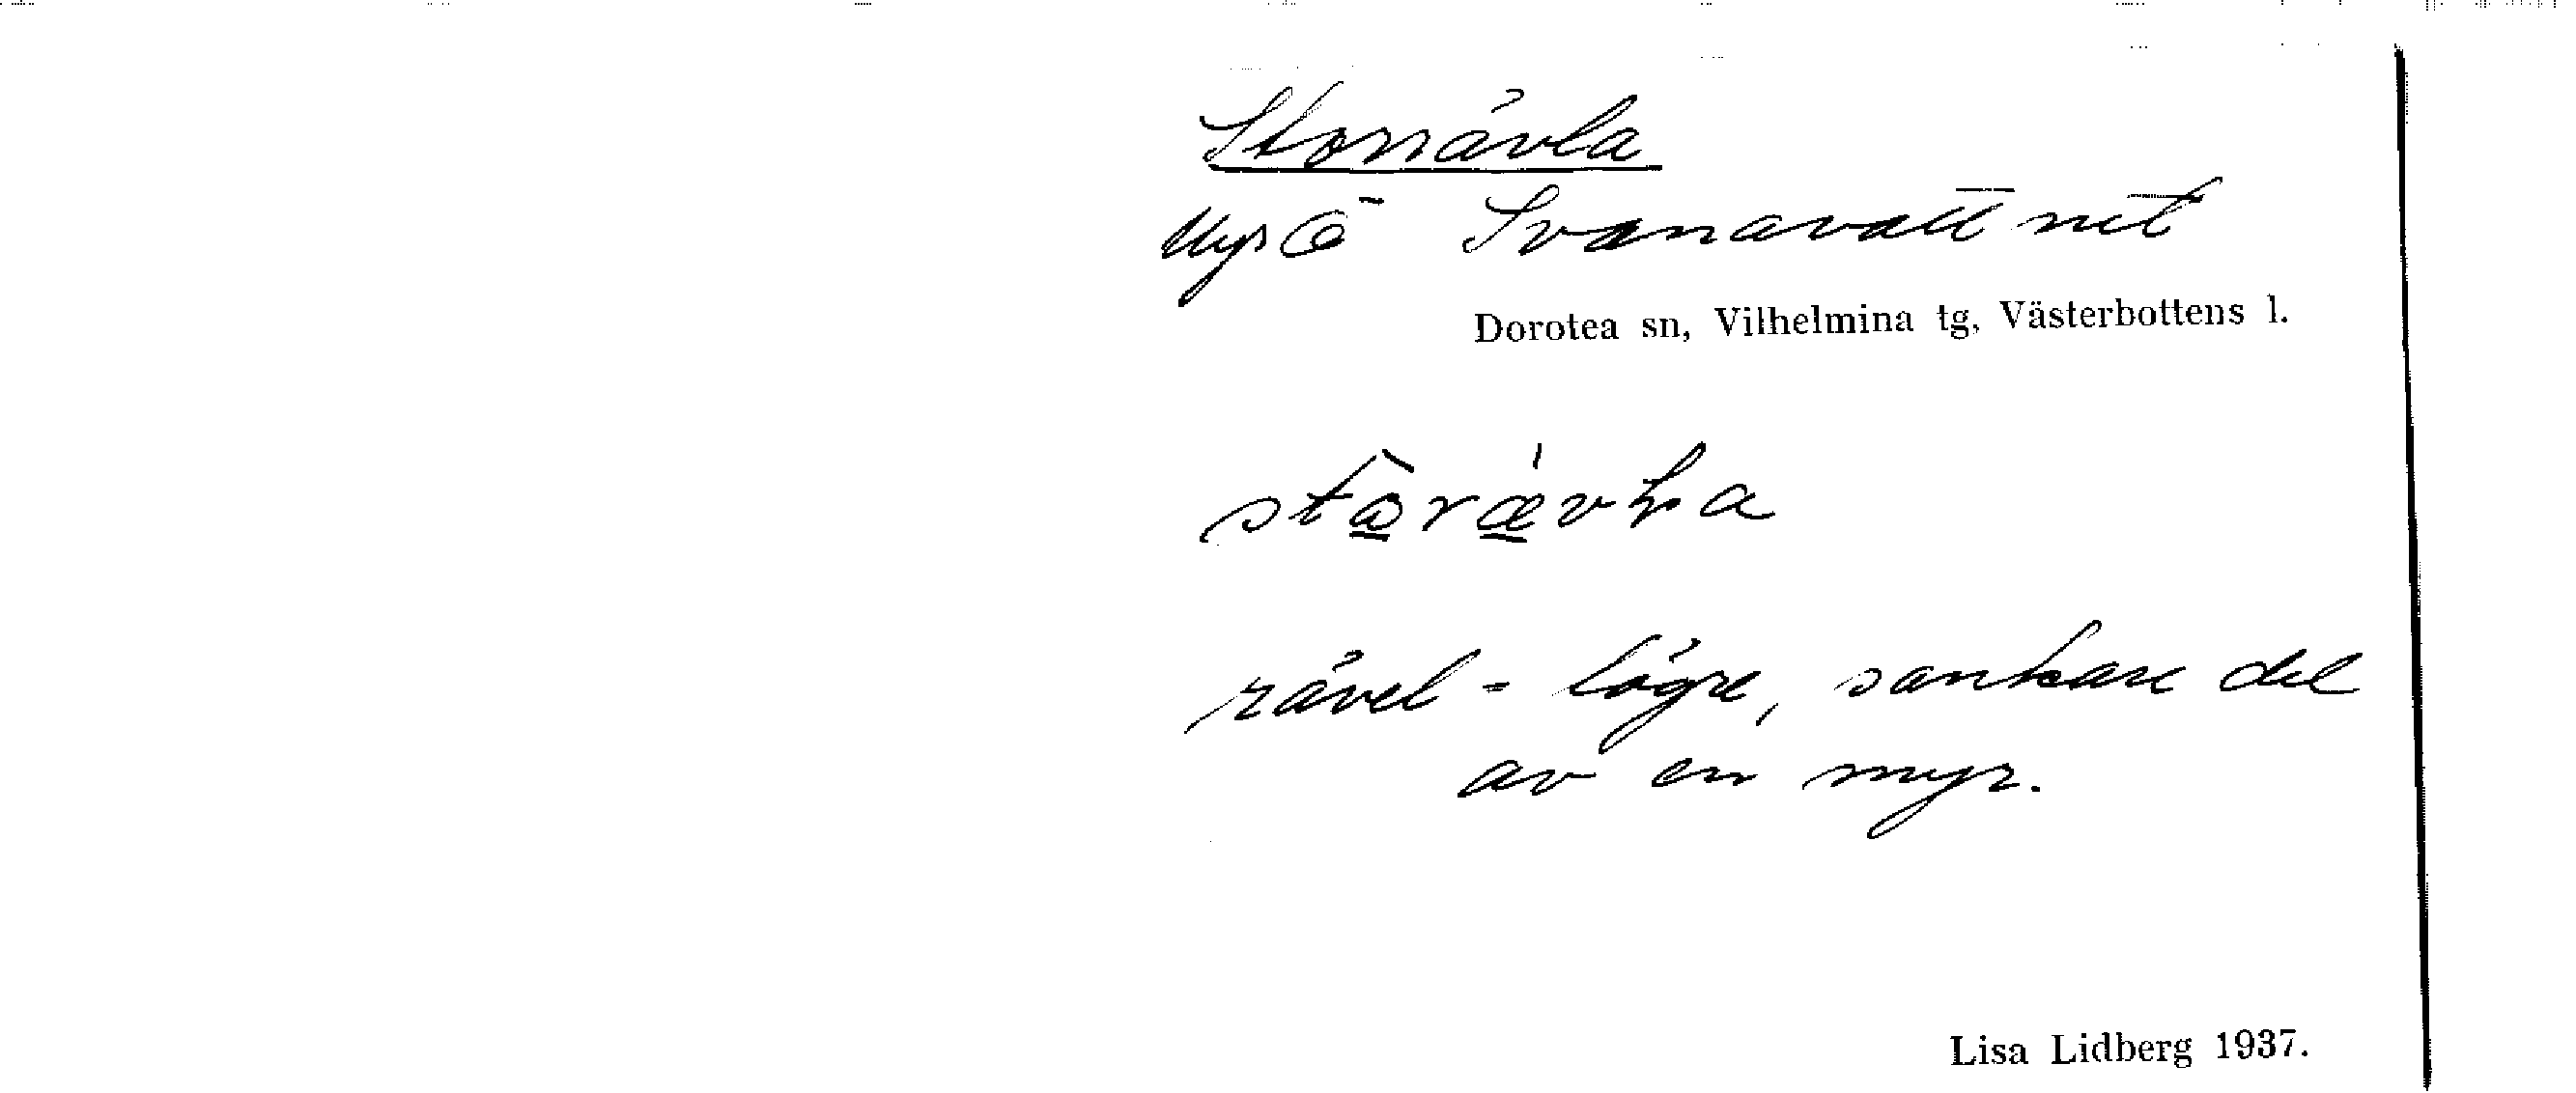 Storrävla
Myr Ö Svanavattnet
Dorotea sn, Vilhelmina tg, Västerbottens l.
rävel = lägre, sankare del
av en myr.
Lisa Lidberg 1937.